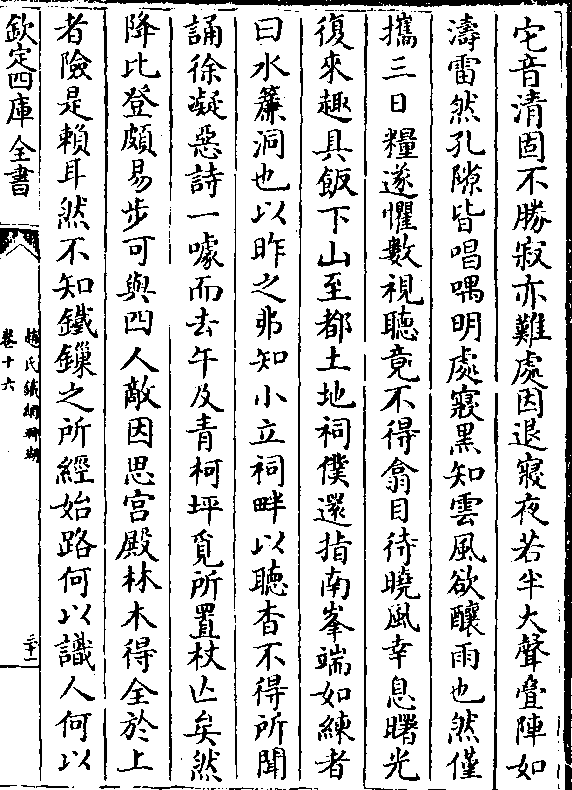 它音清固不勝寂亦難處因退寢夜若半大聲疊陣如
濤雷然孔隙皆唱喁明處寢黑知雲風欲釀雨也然僅
攜三日糧遂懼數視聽竟不得翕目待曉風幸息曙光
復來趣具飯下山至都土地祠僕還指南峯端如練者
曰水簾洞也以昨之弗知小立祠畔以聽杳不得所聞
誦徐凝惡詩一噱而去午及青柯坪覓所置杖亾矣然
降比登頗易步可與四人敵因思宫殿林木得全於上
者險是賴耳然不知鐵鏁之所經始路何以識人何以
欽定四庫全書
趙氏鐵網珊瑚
卷十六
三十二